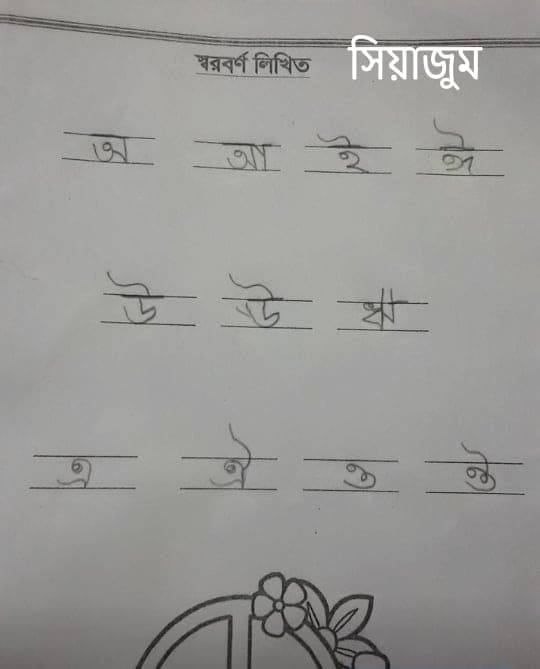 স্বরবর্ণ লিখিত
সিয়াজুম
অ আ ই ঈ
উ ঊ ঋ
এ ঐ ও ঔ